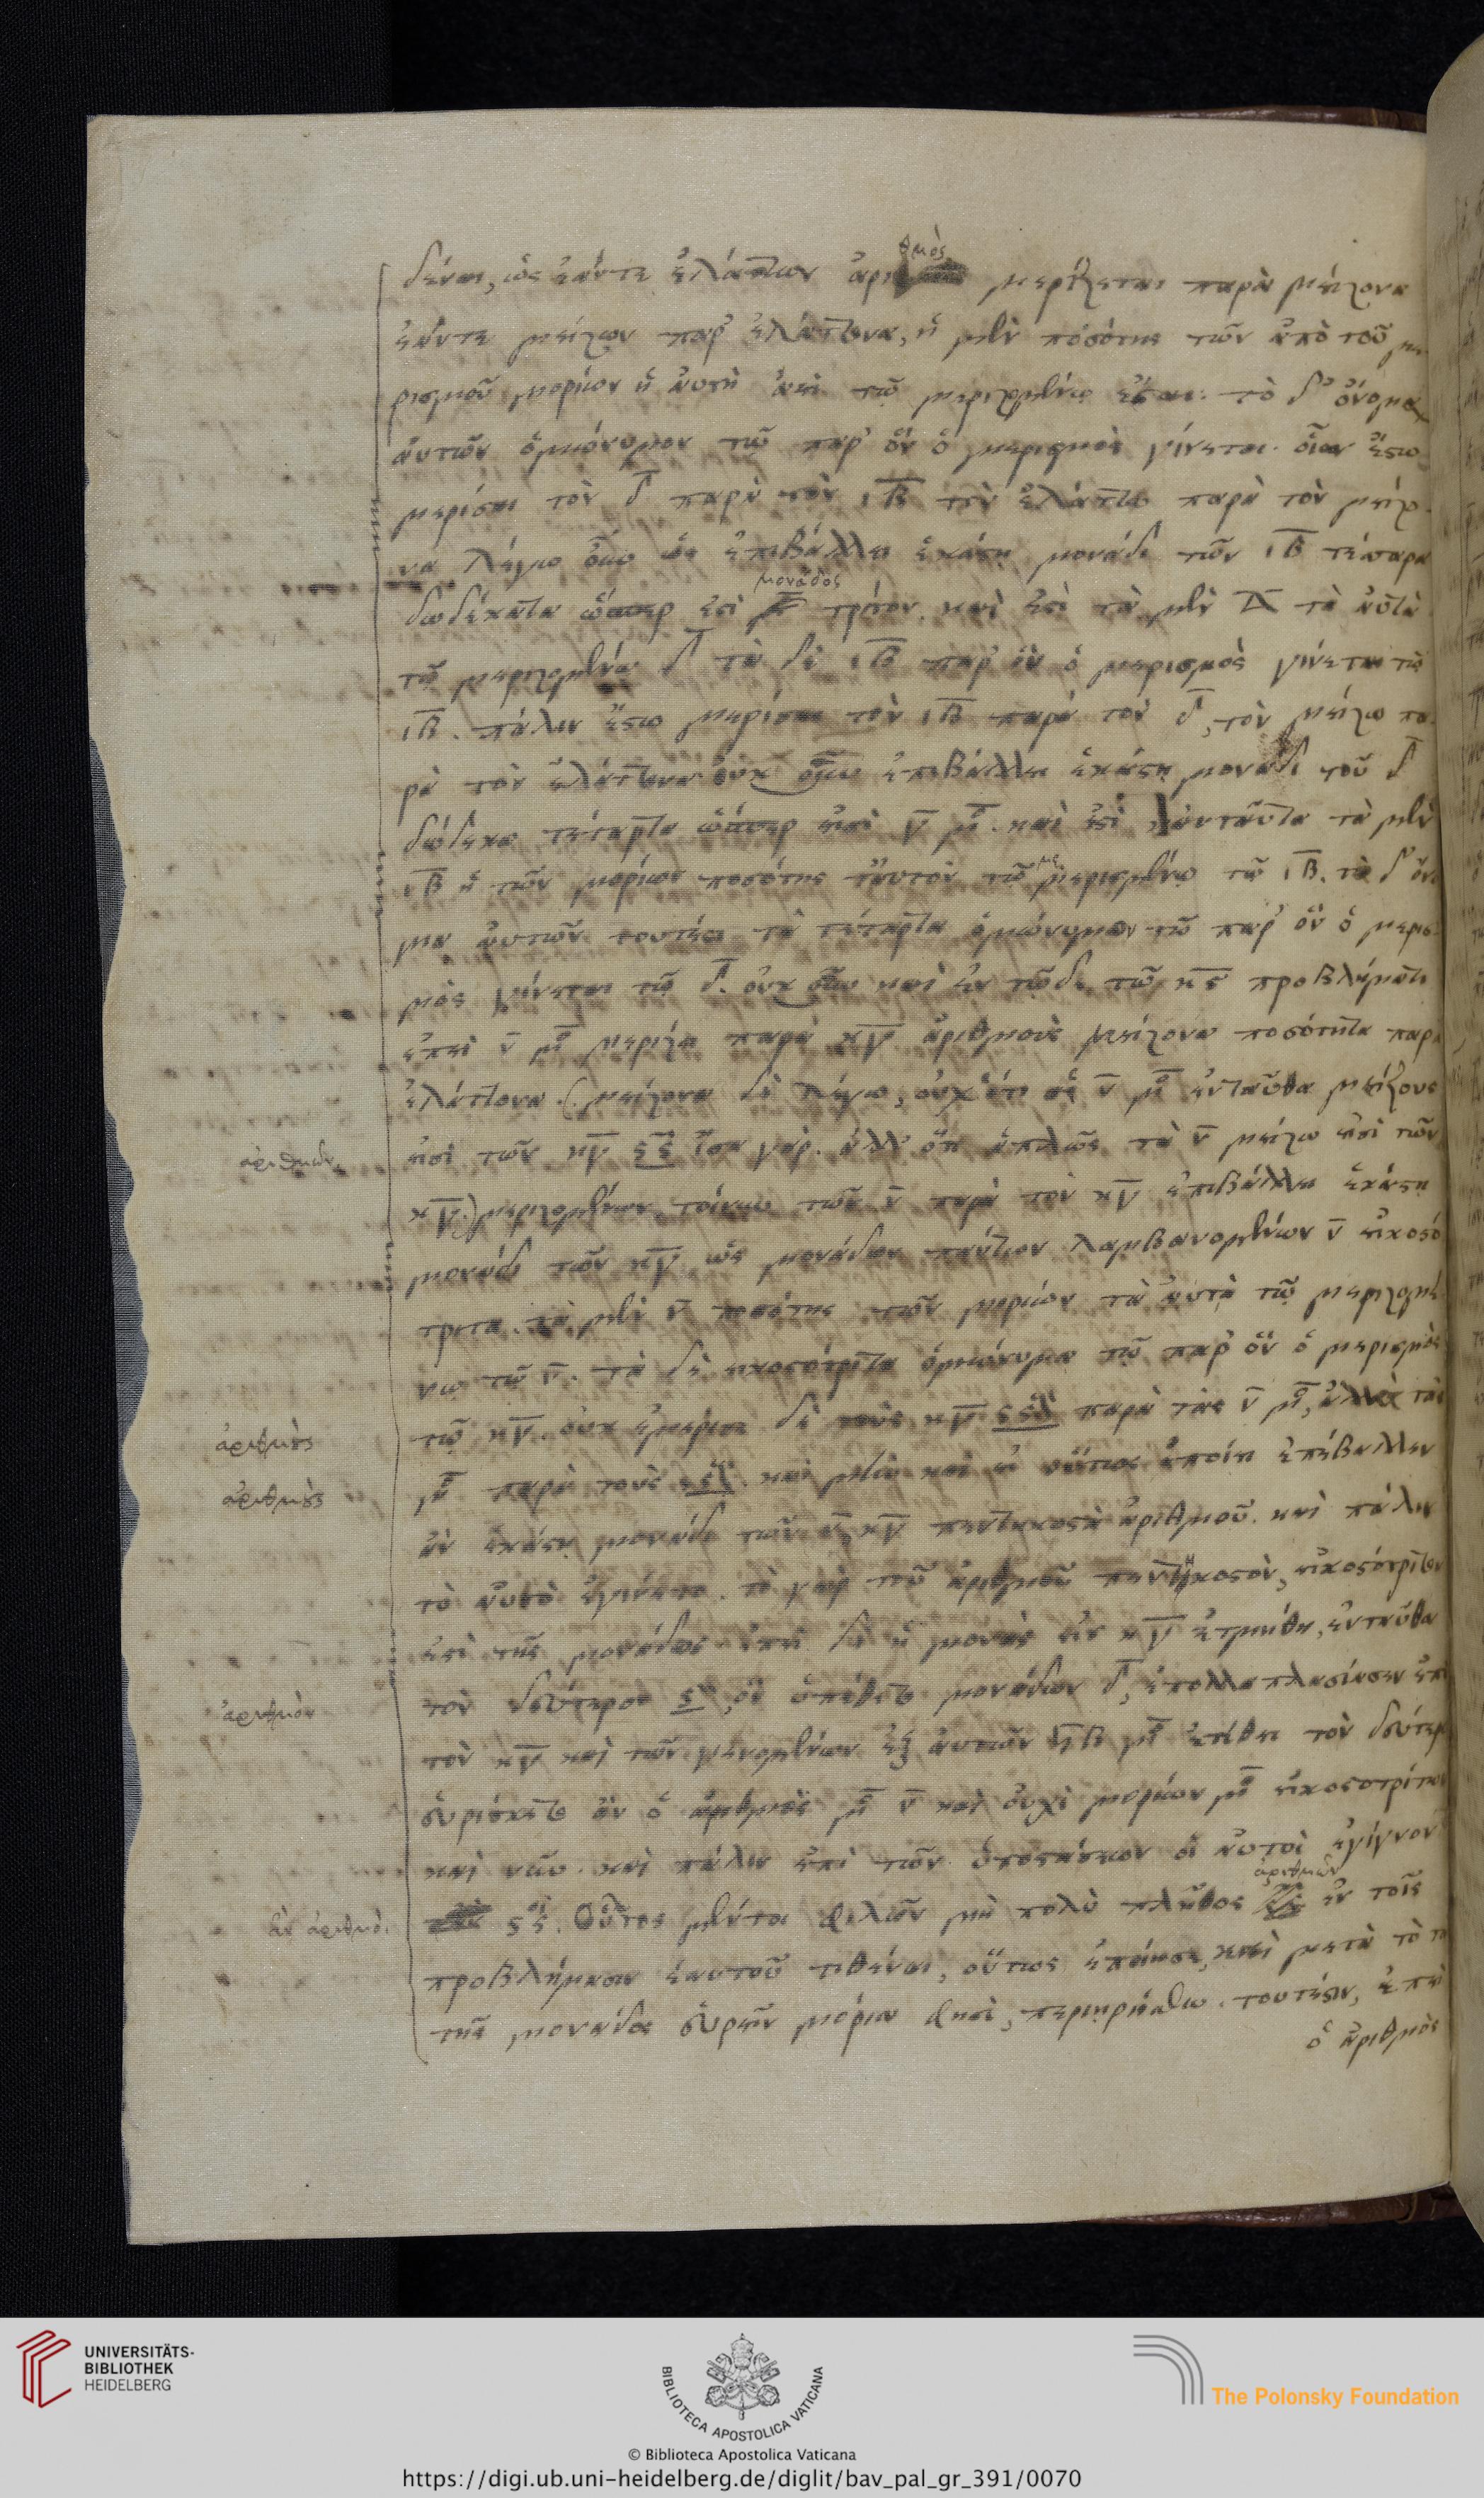 δέναι, ὡς ἐάντε ἐλάττων ἀριθμὸς μερίζεται παρὰ μείζονα
ἐάντε μείζων παρ' ἐλάττονα, ἡ μὲν ποσότης τῶν ἀπὸ τοῦ με
ρισμοῦ μορίων ἡ αὐτὴ ἀεὶ τῷ μεριζομένῳ ἔσται. τὸ δ' ὄνομα
αὐτῶν ὁμώνυμον τῷ παρ' ὃν ὁ μερισμὸς γίνεται. οἷον ἔστω
μερίσαι τὸν δ παρὰ τὸν ιβ τὸν ἐλάττω παρὰ τὸν μείζο
να λέγω οὕτω ὡς ἐπιβάλλει ἑκάστῃ μονάδι τῶν ιβ τέσσαρα
δωδέκατα ὥσπερ ἐστὶ μονάδος τρίτον. καὶ ἐστὶ τὰ μὲν δ τὰ αὐτὰ
τῷ μεριζομένῳ δ τὰ δὲ ιβ παρ' ὃν ὁ μερισμὸς γίνεται τῷ
ιβ. πάλιν ἔστω μερίσαι τὸν ιβ παρὰ τὸν δ, τὸν μείζω πα
ρὰ τὸν ἐλάττονα οὐχ οὕτω ἐπιβάλλει ἑκάστῃ μονάδι τοῦ δ
δώδεκα τέταρτα ὥσπερ εἰσὶ γ μο. καὶ ἐστὶ κἀνταῦθα τὰ μὲν
ιβ ἡ τῶν μορίων ποσότης ταυτὸν τῷ μεμερισμένῳ τῷ ιβ. τὸ δ' ὄνο
μα αὐτῶν τουτέστι τὰ τέταρτα ὁμώνυμον τῷ παρ' ὃν ὁ μερισ
μὸς γίνεται τῷ δ. οὐχ οὕτω καὶ ἐν τῷδε τῷ κς προβλήματι
ἐπεὶ ν μο μερίζει παρὰ κγ ἀριθμοὺς μείζονα ποσότητα παρ'
ἐλάττονα. (μείζονα δὲ λέγω, οὐχ ὅτι αἱ ν μο ἐνταῦθα μείζους
εἰσὶ τῶν κγ ςς ἴσα γάρ. ἀλλ' ὅτι ἁπλῶς τὰ ν μείζω εἰσὶ τῶν
ἀριθμῶν
κγ.) μεριζομένων τοίνυν τῶν ν παρὰ τὸν κγ ἐπιβάλλει ἑκάστῃ
μονάδι τῶν κγ ὡς μονάδων πάντων λαμβανομένων ν εἰκοστό
τριτα. τὰ μὲν ν ποσότης τῶν μορίων τὰ αὐτὰ τῷ μεριζομέ
νῳ τῷ ν. τὰ δὲ εἰκοστότριτα ὁμώνυμα τῷ παρ' ὃν ὁ μερισμὸς
τῷ κγ. οὐκ ἐμέρισε δὲ τοὺς κγ ςς παρὰ τὰς ν μο, ἀλλὰ τὰς
ἀριθμοὺς
μο παρὰ τοὺς ςς. καὶ εἰ οὕτως ἐποίει ἐπέβαλλεν
ἀριθμοὺς
ἂν ἑκάστῃ μονάδι τῶν ν, κγ πεντηκοστὰ ἀριθμοῦ. καὶ πάλιν
τὸ αὐτὸ ἐγίνετο. τὸ γὰρ τοῦ ἀριθμοῦ πεντηκοστὸν, εἰκοστότριτον
ἐστὶ τῆς μονάδος. ἐπεὶ δὲ ἡ μονὰς εἰς κγ ἐτμήθη, ἐνταῦθα
τὸν δεύτερον ς, ὃν ὑπέθετο μονάδων δ, ἐπολλαπλασίασεν ἐπὶ
ἀριθμὸν
τὸν κγ καὶ τῶν γενομένων ἐξ αὐτῶν ϟβ μο ἐτέθη τὸν δεύτερον
εὑρίσκετο ἂν ὁ ἀριθμὸς μο ν καὶ οὐχὶ μορίων μο εἰκοστοτρίτων
καὶ νῦν. καὶ πάλιν ἐπὶ τῶν ὑποστάσεων οἱ αὐτοὶ ἐγίγνον
ςς. Οὗτος μέντοι φιλῶν μὴ πολὺ πλῆθος ἀριθμῶν ἐν τοῖς
ἂν ἀριθμοί.
προβλήμασιν ἑαυτοῦ τιθέναι, οὕτως ἐποίησε, καὶ μετὰ τὸ τὰ
τῆς μονάδος εὑρεῖν μόρια φησὶ, περιῃρήσθω. τουτέστιν, ἐπεὶ
ὁ ἀριθμὸς
UNIVERSITÄTS-
BIBLIOTHEK
HEIDELBERG
BIBLIOTECA APOSTOLICA VATICANA
The Polonsky Foundation
© Biblioteca Apostolica Vaticana
https://digi.ub.uni-heidelberg.de/diglit/bav_pal_gr_391/0070